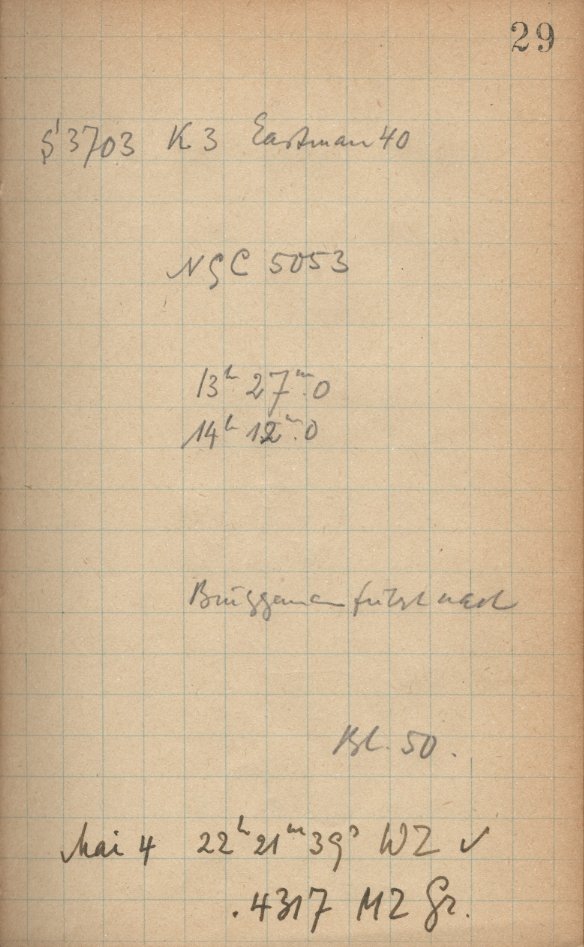 29
S 3703 K 3 Eastman 40
NGC 5053
13ʰ 27ᵐ.0
14ʰ 12ᵐ.0
Brüggemann führt nach
Bl. 50.
Mai 4 22ʰ 21ᵐ 39ˢ WZ ✓
.4317 MZ Gr.